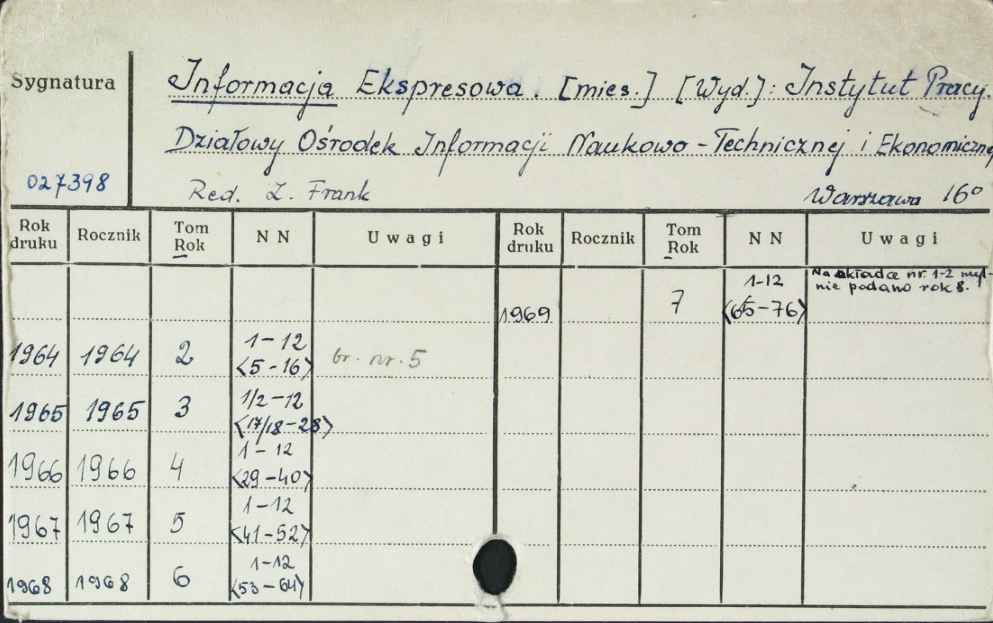 Sygnatura
Informacja Ekspresowa. [mies.] [Wyd.]: Instytut Pracy.
Działowy Ośrodek Informacji Naukowo-Technicznej i Ekonomicznej
027398 Red. L. Frank Warszawa 16°
Rok druku Rocznik Tom Rok NN Uwagi Rok druku Rocznik Tom Rok NN Uwagi
1969 7 1-12 <65-76> Na okładce nr. 1-2 myl-
nie podano rok 8.
1964 1964 2 1-12 <5-16> br. nr. 5
1965 1965 3 1/2-12 <17/18-28>
1966 1966 4 1-12 <29-40>
1967 1967 5 1-12 <41-52>
1968 1968 6 1-12 <53-64>